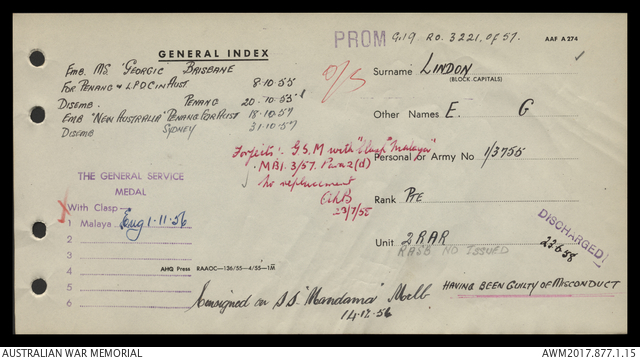 PROM G19 RO. 3221 of 57. AAF A 274
GENERAL INDEX
Emb. MS 'Georgic' Brisbane
For Penang & LPDC in Aust 8.10.55
Disemb. Penang 20.10.55
Emb "New Australia" Penang For Aust 18.10.57
Disemb Sydney 31.10.57
O/S
Surname LINDON
(BLOCK CAPITALS)
Other Names E. G
Forfeits: G.S.M with "Clasp" "Malaya"
MBI. 3/57. Para 2(d)
No replacement
23/7/58
Personal or Army No 1/3755
Rank Pte
Unit 2 RAR
RASB NO ISSUED
DISCHARGED
22.6.58
HAVING BEEN GUILTY OF MISCONDUCT
THE GENERAL SERVICE
MEDAL
With Clasp—
1 Malaya Eng 1.11.56
2
3
4
5
6
AHQ Press RAAOC—136/55—4/55—1M
Consigned on S.S. "Mandama" Melb
14.12.56
AUSTRALIAN WAR MEMORIAL
AWM2017.877.1.15